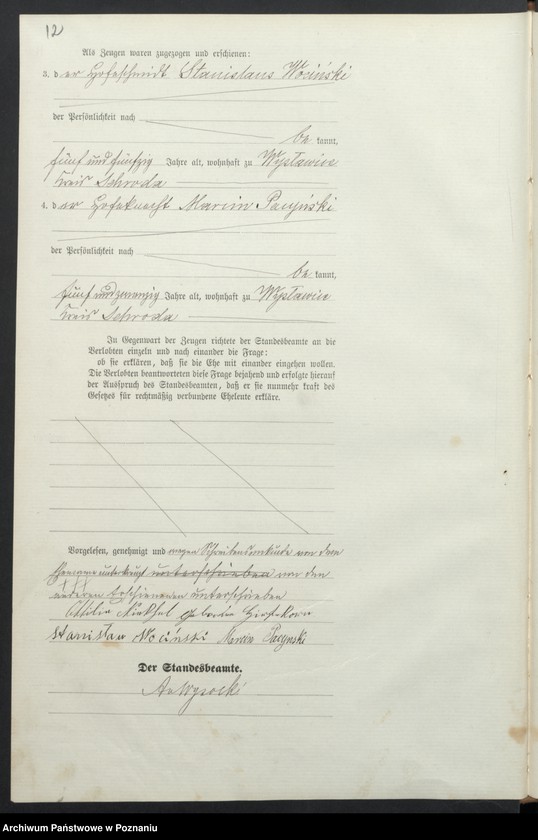 12
Als Zeugen waren zugezogen und erschienen:
3. der Hofeschmidt Stanislaus Wociński
der Persönlichkeit nach
be kannt,
fünf und fünfzig Jahre alt, wohnhaft zu Wysławice
Kreis Schroda
4. der Hofeknecht Marcin Pacyński
der Persönlichkeit nach
be kannt,
fünf und zwanzig Jahre alt, wohnhaft zu Wysławice
Kreis Schroda
In Gegenwart der Zeugen richtete der Standesbeamte an die
Verlobten einzeln und nach einander die Frage:
ob sie erklären, daß sie die Ehe mit einander eingehen wollen.
Die Verlobten beantworteten diese Frage bejahend und erfolgte hierauf
der Ausspruch des Standesbeamten, daß er sie nunmehr kraft des
Gesetzes für rechtmäßig verbundene Eheleute erkläre.
Vorgelesen, genehmigt und wegen Schreibensunkunde von dem
Ehemanne unterkreuzt unterschrieben von den
anderen Erschienenen unterschrieben
+++
Ottilie geborene
Stanisław Wociński Marcin Pacyński
Der Standesbeamte.
Wysocki
Archiwum Państwowe w Poznaniu